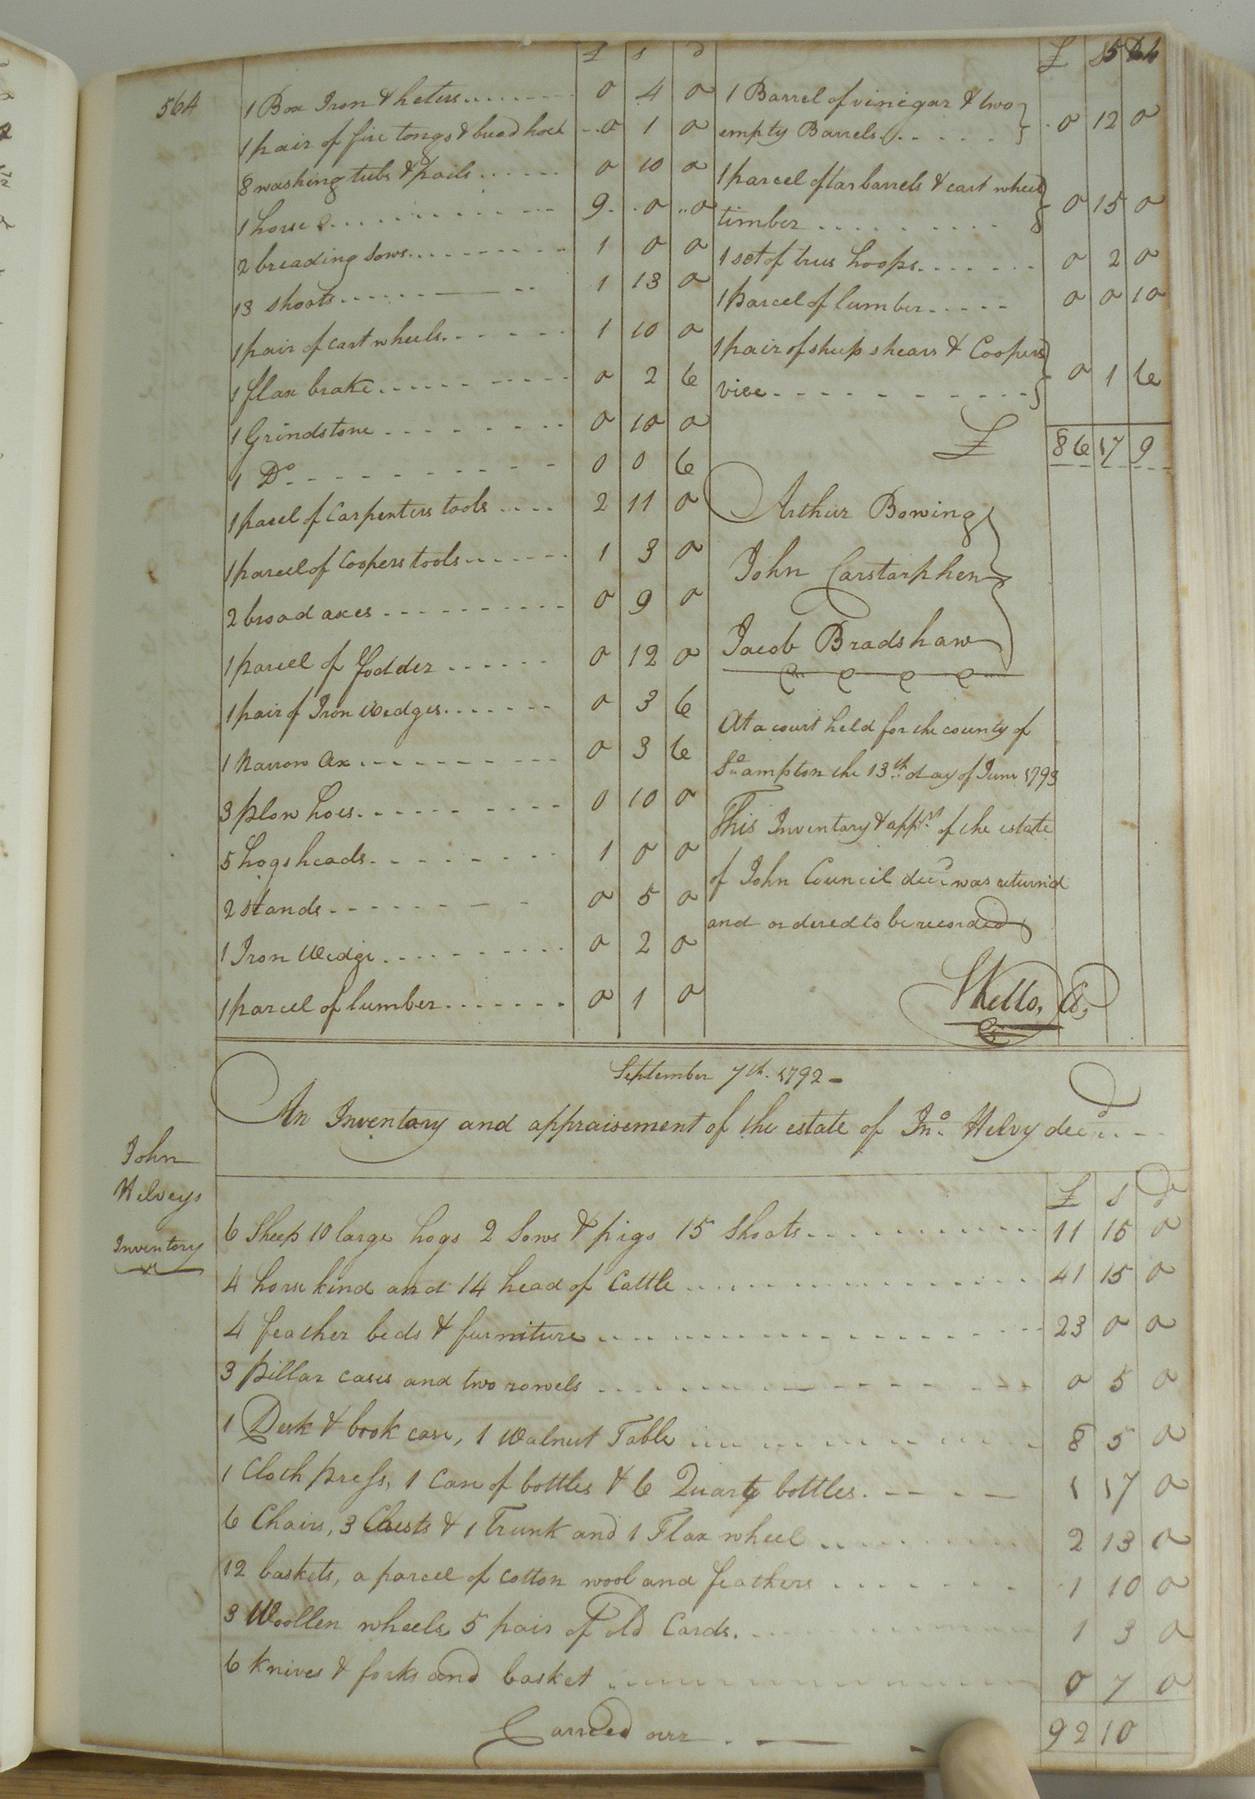 564
£ s d
1 Box Iron & heters ....... 0 4 0
1 pair of fire tongs & bread hock ... 0 1 0
8 washing tubs & pails ...... 0 10 0
1 horse ........... 9 0 0
2 breading sows ......... 1 0 0
13 shoats ......... 1 13 0
1 pair of cart wheels ...... 1 10 0
1 flax brake ......... 0 2 6
1 Grindstone ........ 0 10 0
1 Do ......... 0 0 6
1 pacel of Carpenters tools .... 2 11 0
1 parcel of Coopers tools ...... 1 3 0
2 broad axes .......... 0 9 0
1 parcel of fodder ...... 0 12 0
1 pair of Iron Wedges ....... 0 3 6
1 Narrow Ax ......... 0 3 6
3 plow hoes .......... 0 10 0
5 hogsheads ........ 1 0 0
2 stands ........ 0 5 0
1 Iron Wedge .......... 0 2 0
1 parcel of lumber ....... 0 1 0
£
1 Barrel of vinegar & two
empty Barrels ...... 0 12 0
1 parcel of tar barrels & cart wheel
timber .......... 0 15 0
1 set of trus hoops ....... 0 2 0
1 parcel of lumber ..... 0 0 10
1 pair of sheep shears & Coopers
vice ............ 0 1 6
£ 86 17 9
Arthur Bowing
John Carstarphen
Jacob Bradshaw
At a court held for the county of
So. ampton the 13th day of June 1793
This Inventory & appt. of the estate
of John Council decd. was returnd
and ordered to be recorded
SKello, Cl.
September 7th. 1792 -
An Inventory and appraisement of the estate of Jno. Helvy decd.
John
Helveys
Inventory
£ s d
6 Sheep 10 large hogs 2 Sows & pigs 15 Shoats .......... 11 15 0
4 horse kind and 14 head of Cattle ............... 41 15 0
4 feather beds & furniture ................ 23 0 0
3 pillar cases and two rowels ............ 0 5 0
1 Desk & book case, 1 Walnut Table ............ 8 5 0
1 Cloth press, 1 Case of bottles & 6 Quart bottles ..... 1 17 0
6 Chairs, 3 Chests & 1 Trunk and 1 Flax wheel .......... 2 13 0
12 baskets, a parcel of cotton wool and feathers ....... 1 10 0
3 Woollen wheels 5 pair of old Cards .......... 1 3 0
6 knives & forks and basket ............... 0 7 0
Carried over 92 10